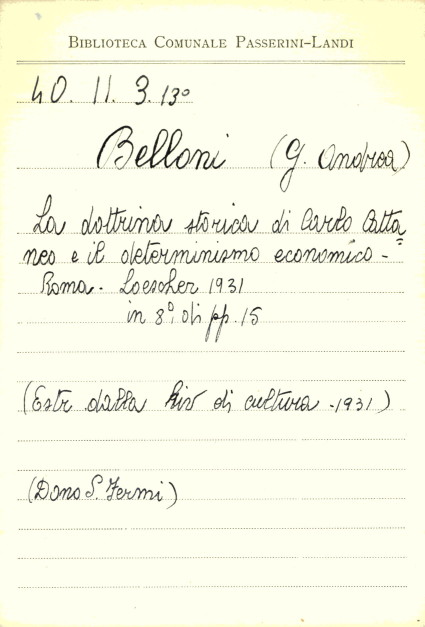 BIBLIOTECA COMUNALE PASSERINI-LANDI
40. 11. 3. 13º
Belloni (G. Andrea)
La dottrina storica di Carlo Catta=
neo e il determinismo economico -
Roma. Loescher 1931
in 8º, di pp. 15
(Estr dalla Riv di cultura - 1931)
(Dono S. Fermi)